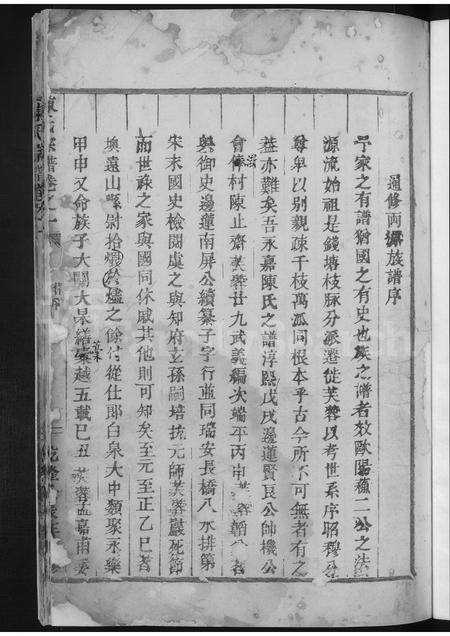 通修兩源族譜序
家之有譜猶國之有史也族之譜者放歐陽蘇二公之法
源流始祖是錢塘枝脉分派遷徙芙蓉以考世系序昭穆分
尊卑以別親疎千枝萬派同根本乎古今所不可無者有之
益亦難矣吾永嘉陳氏之譜淳熙戊戌邊蓮賢良公帥機公
會修村陳止齋芙蓉廿九武義編次端平丙申芙蓉
與御史邊蓮南屏公續纂子字行並同瑞安長橋八水排第
宋末國史檢閱虞之與知府立孫嗣培抗元師芙蓉巖死節
而世祿之家與國同休戚其他則可知矣至元至正乙巳者
墺遠山縣尉拾燬於燼之餘付從仕郎白泉大中類聚永樂
甲申又命族子大閣大杲繕越五載巳丑芙蓉孟嘉甫